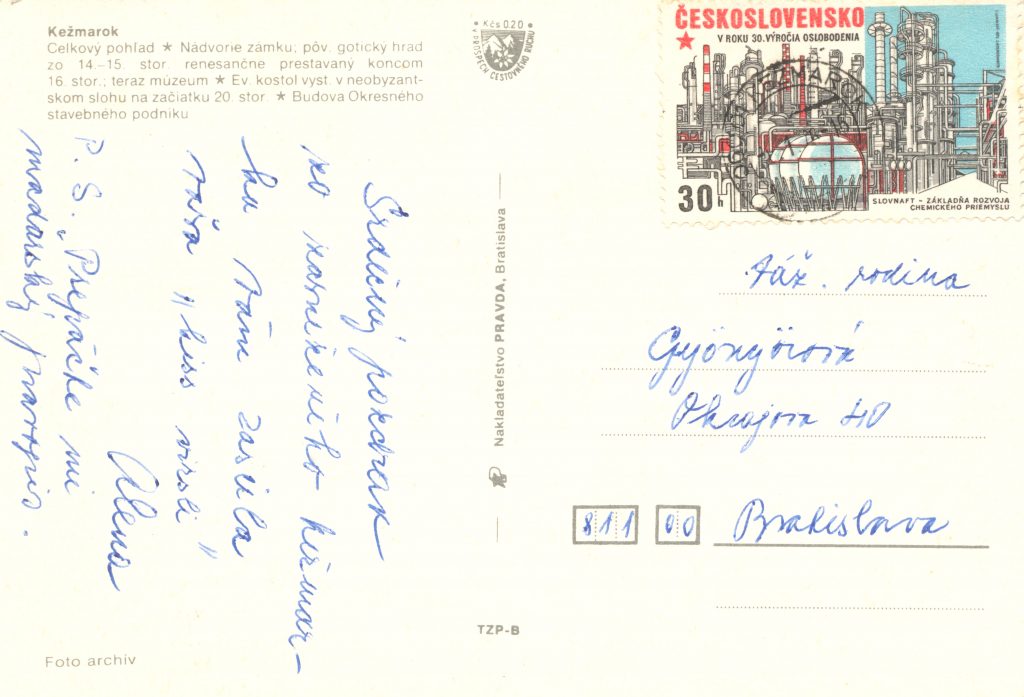 Kežmarok
Celkový pohľad ★ Nádvorie zámku; pôv. gotický hrad
zo 14.–15. stor. renesančne prestavaný koncom
16. stor.; teraz múzeum ★ Ev. kostol vyst. v neobyzant-
skom slohu na začiatku 20. stor. ★ Budova Okresného
stavebného podniku
Kčs 0.20
V PROSPECH CESTOVNÉHO RUCHU
ČESKOSLOVENSKO
V ROKU 30. VÝROČIA OSLOBODENIA
30 h
SLOVNAFT – ZÁKLADŇA ROZVOJA
CHEMICKÉHO PRIEMYSLU
KEŽMAROK
Srdečný pozdrav
zo zasneženého kežmar-
ku Vám zasiela
Vaša "kiss virsli"
Alena
P. S. "Prepáčte mi
maďarský pravopis.
Nakladateľstvo PRAVDA, Bratislava
Váž. rodina
Gyöngyösová
Okrajova 40
811 00 Bratislava
TZP-B
Foto archív